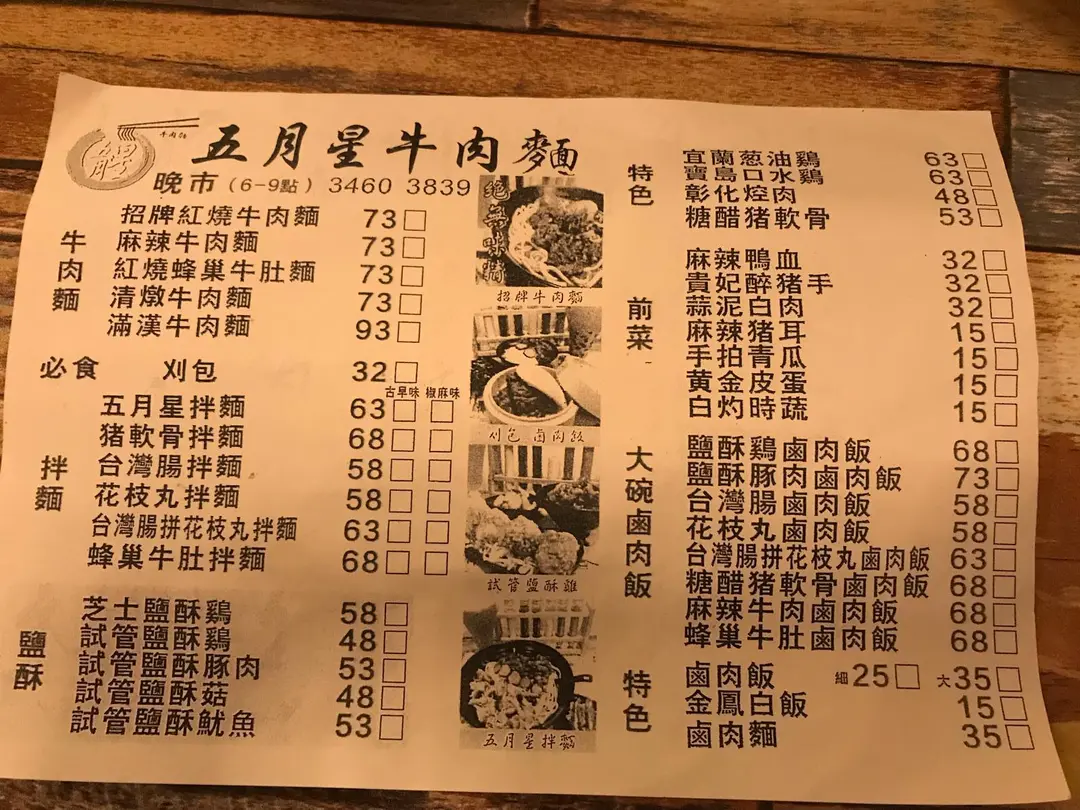 牛肉麵
五月星牛肉麵
晚市 (6-9點) 3460 3839
牛肉麵
招牌紅燒牛肉麵 73
麻辣牛肉麵 73
紅燒蜂巢牛肚麵 73
清燉牛肉麵 73
滿漢牛肉麵 93
必食 刈包 32
古早味 椒麻味
拌麵
五月星拌麵 63
猪軟骨拌麵 68
台灣腸拌麵 58
花枝丸拌麵 58
台灣腸拼花枝丸拌麵 63
蜂巢牛肚拌麵 68
鹽酥
芝士鹽酥鷄 58
試管鹽酥鷄 48
試管鹽酥豚肉 53
試管鹽酥菇 48
試管鹽酥魷魚 53
招牌牛肉麵
刈包 鹵肉飯
試管鹽酥雞
五月星拌麵
特色
宜蘭葱油鷄 63
寶島口水鷄 63
彰化焢肉 48
糖醋猪軟骨 53
前菜
麻辣鴨血 32
貴妃醉猪手 32
蒜泥白肉 32
麻辣猪耳 15
手拍青瓜 15
黄金皮蛋 15
白灼時蔬 15
大碗鹵肉飯
鹽酥鷄鹵肉飯 68
鹽酥豚肉鹵肉飯 73
台灣腸鹵肉飯 58
花枝丸鹵肉飯 58
台灣腸拼花枝丸鹵肉飯 63
糖醋猪軟骨鹵肉飯 68
麻辣牛肉鹵肉飯 68
蜂巢牛肚鹵肉飯 68
特色
鹵肉飯 細25 大35
金鳳白飯 15
鹵肉麵 35